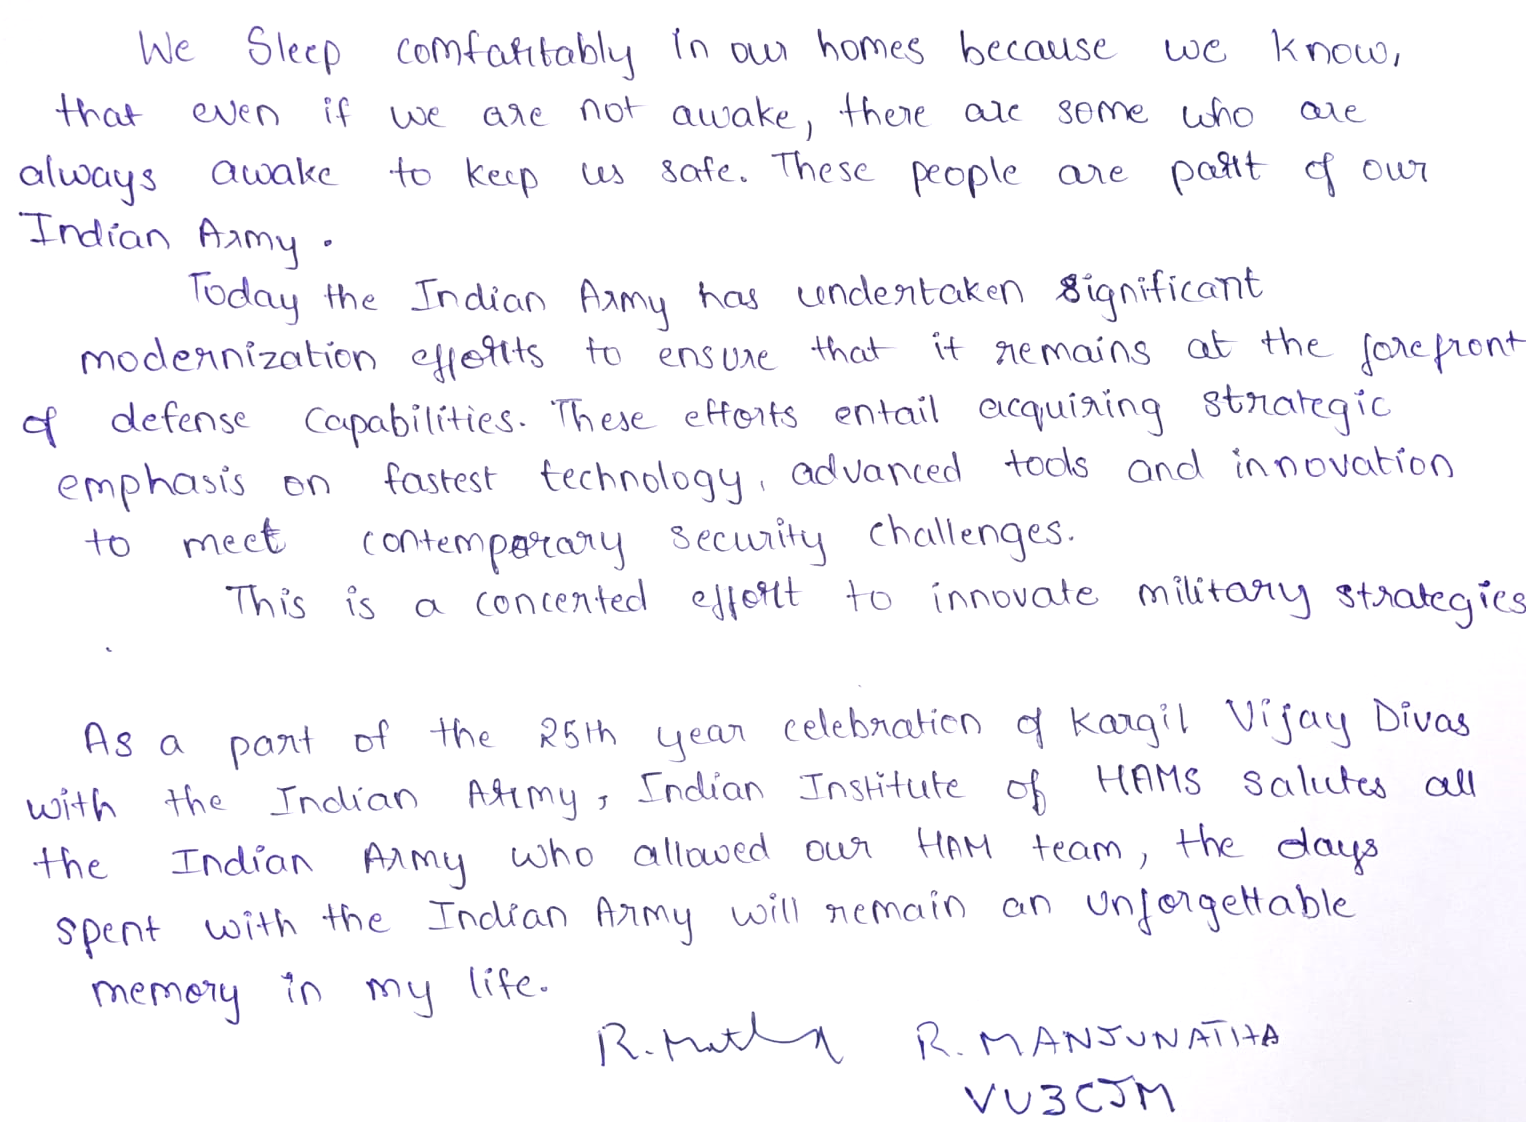 We Sleep comfortably in our homes because we know,
that even if we are not awake, there are some who are
always awake to keep us safe. These people are part of our
Indian Army.
Today the Indian Army has undertaken significant
modernization efforts to ensure that it remains at the forefront
of defense capabilities. These efforts entail acquiring strategic
emphasis on fastest technology, advanced tools and innovation
to meet contemporary security challenges.
This is a concerted effort to innovate military strategies
As a part of the 25th year celebration of Kargil Vijay Divas
with the Indian Army, Indian Institute of HAMS salutes all
the Indian Army who allowed our HAM team, the days
spent with the Indian Army will remain an unforgettable
memory in my life.
R. MANJUNATHA
VU3CJM